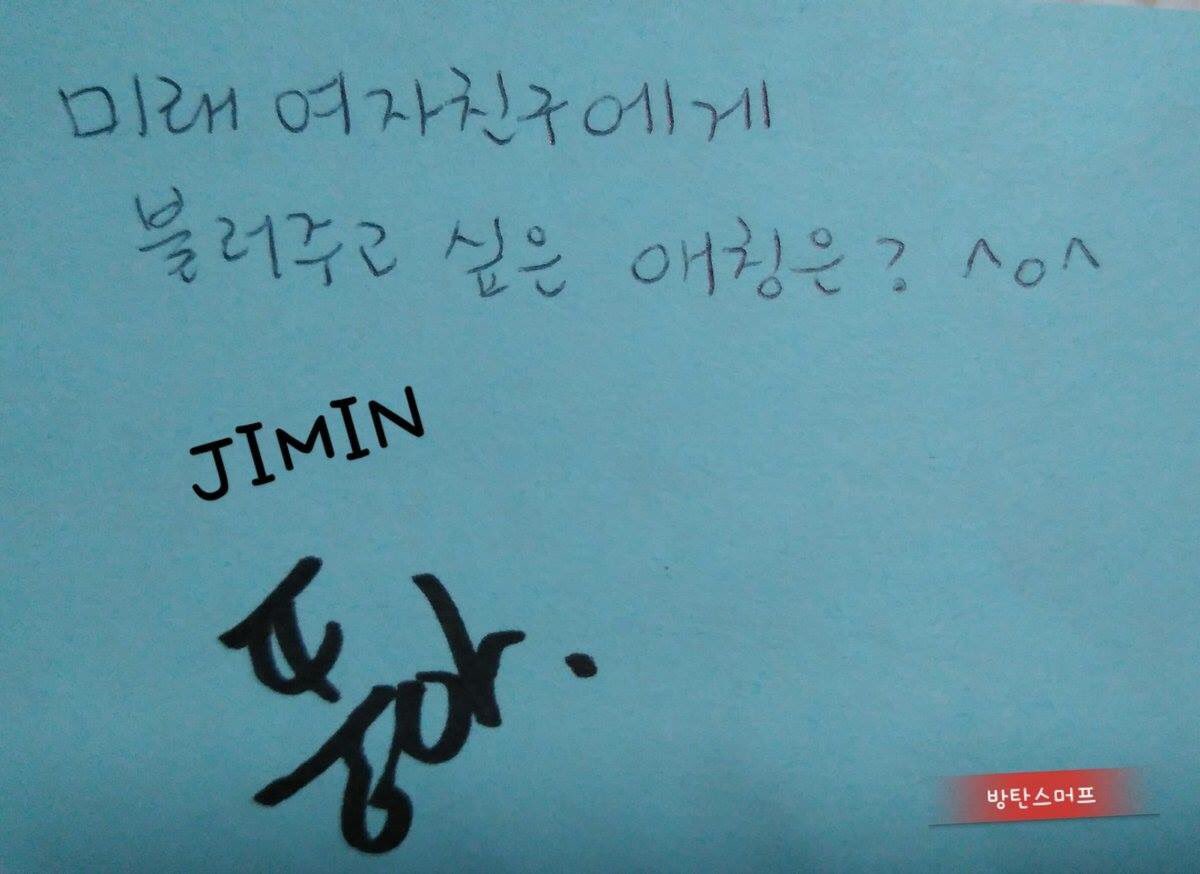 미래 여자친구에게
불러주고 싶은 애칭은? ^o^
JIMIN
방탄스머프